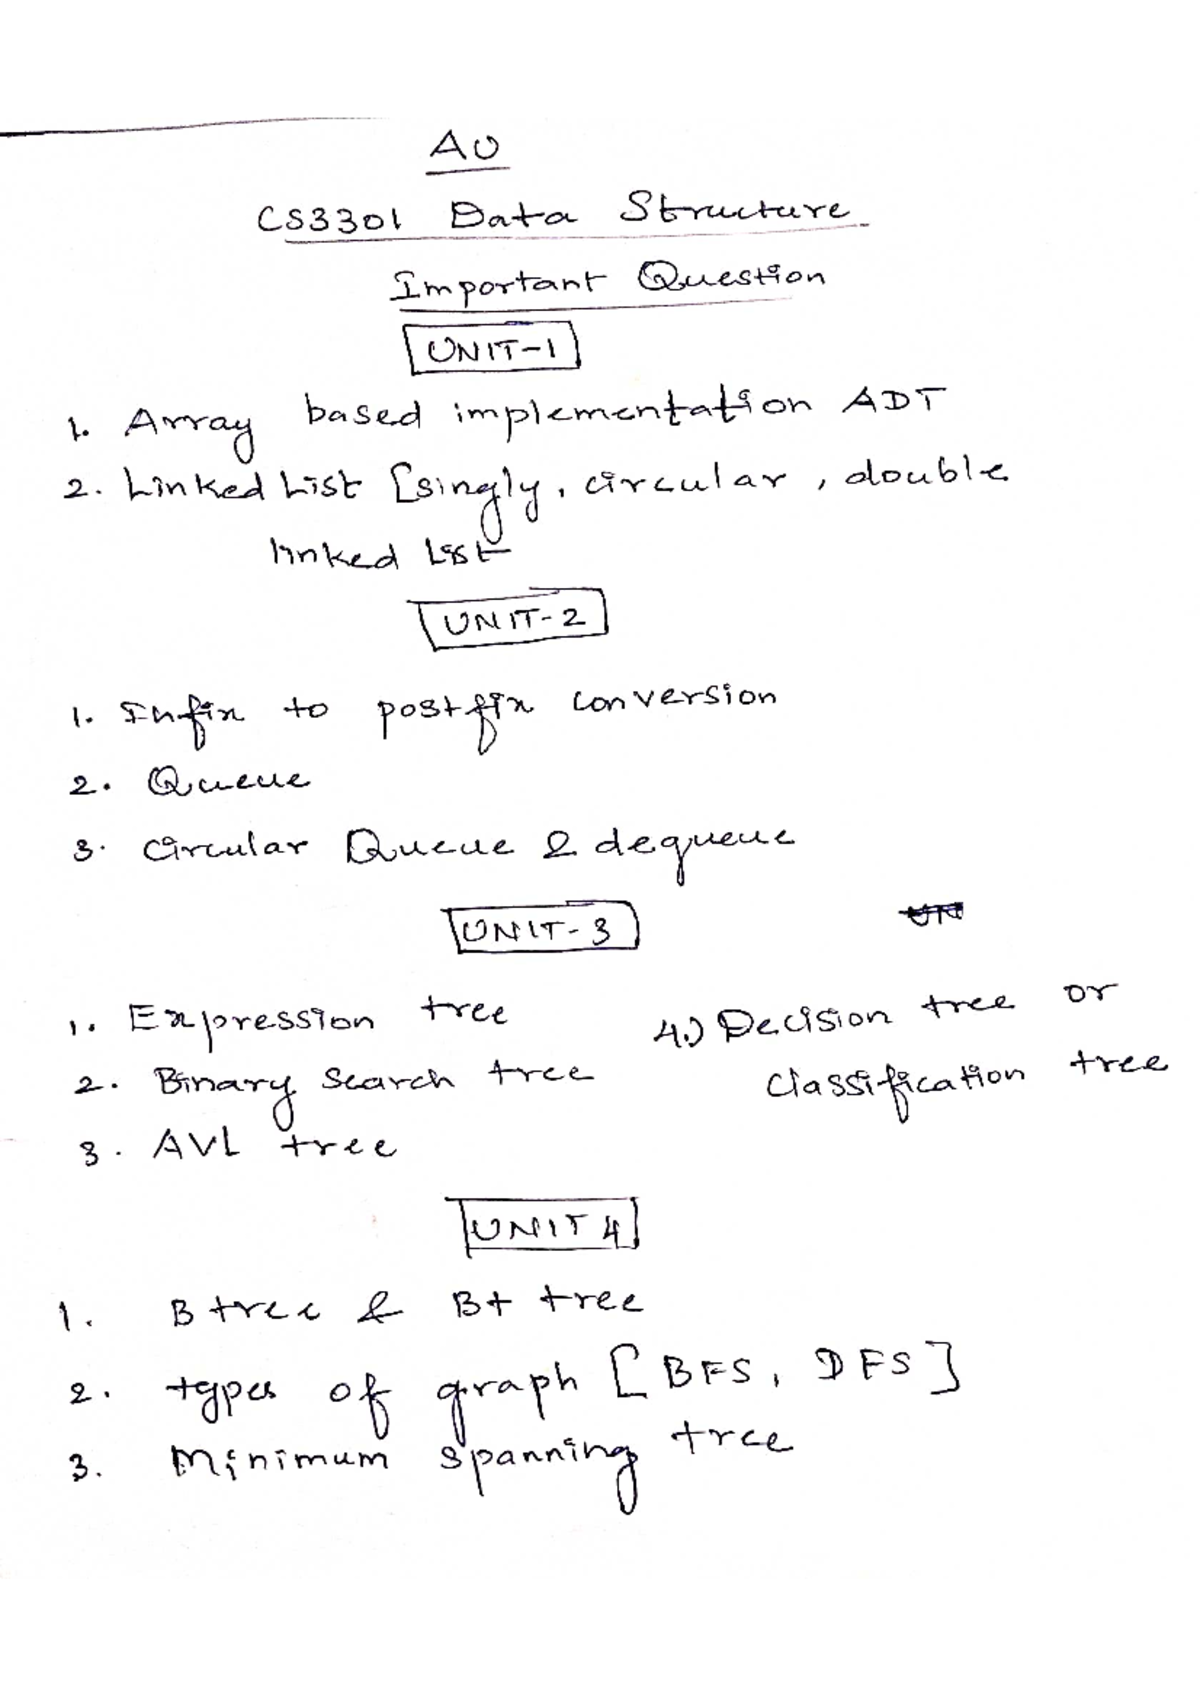 AU
CS3301 Data Structure
Important Question
UNIT-1
1. Array based implementation ADT
2. Linked List [singly, circular, double
linked List
UNIT-2
1. Infix to postfix conversion
2. Queue
3. Circular Queue & dequeue
UNIT-3
UN
1. Expression tree
2. Binary Search tree
3. AVL tree
4.) Decision tree or
classification tree
UNIT 4
1. B tree & B+ tree
2. types of graph [BFS, DFS]
3. Minimum spanning tree